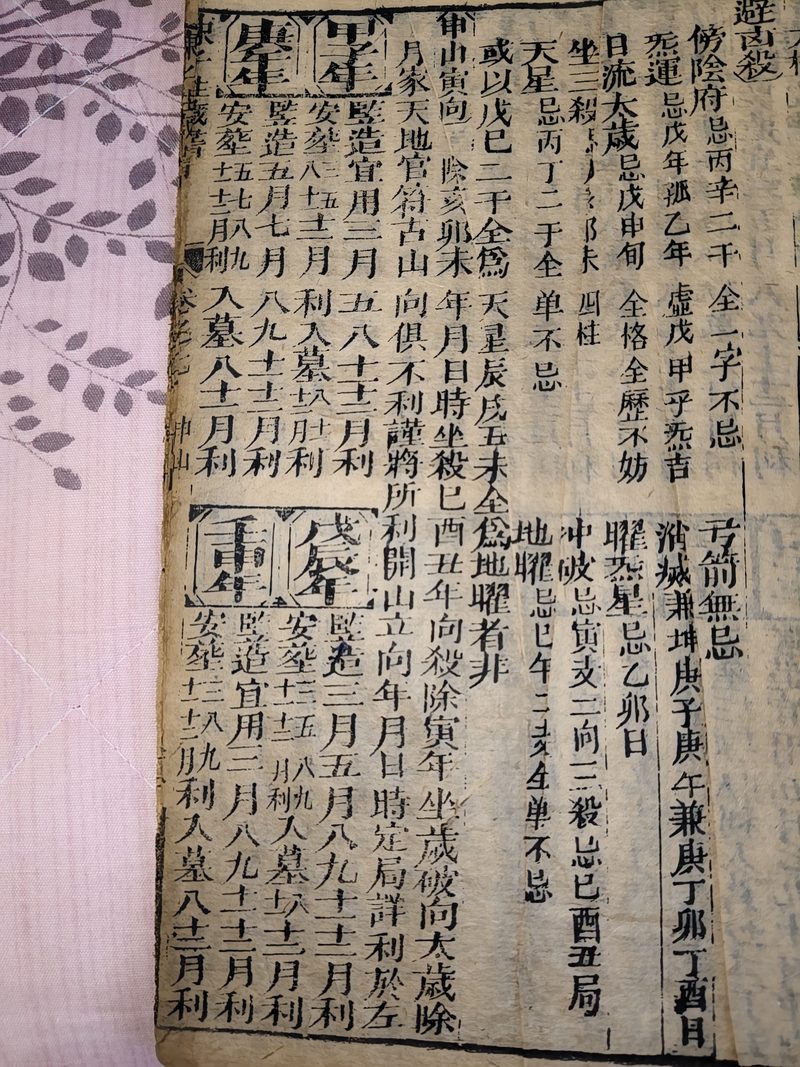 避凶殺
傍陰府忌丙辛二干全一字不忌
炁運忌戊年乙年虛戊甲乎炁吉
日流太歲忌戊申旬全格全歷不妨
坐三殺未四柱
天星忌丙丁二于全单不忌
弓箭無忌
消滅兼坤庚子庚午兼庚丁卯丁酉日
曜炁星忌乙卯日
冲破忌寅支二向三殺忌巳酉丑局
地曜忌巳午二亥全单不忌
或以戊巳二干全爲天星辰戌丑未全爲地曜者非
申山寅向除亥卯未年月日時坐殺巳酉丑年向殺除寅年坐歲破向太歲除
月家天地官符古山向俱不利謹將所利開山立向年月日時定局詳利於左
甲子年
竪造宜用三月五八十一十二月利
安塟八三五十一十二月利入墓月利
庚午年
竪造五月七月八九十一十二月利
安塟五七八九十一十二月利入墓八十二月利
戊辰年
竪造三月五月八九十一十二月利
安塟三五八九十一十二月利入墓十二月利
壬申年
竪造宜用三月八九十一十二月利
安塟三八九十一十二月利入墓八十二月利
申山